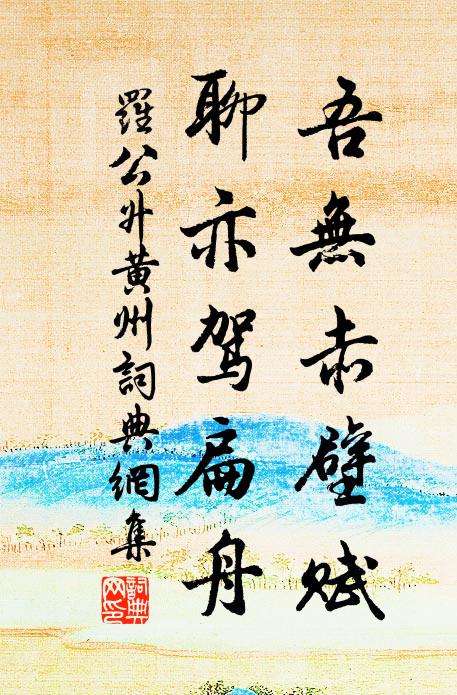 吾無赤壁賦
聊亦駕扁舟
羅公升黃州詞典網集
詞典